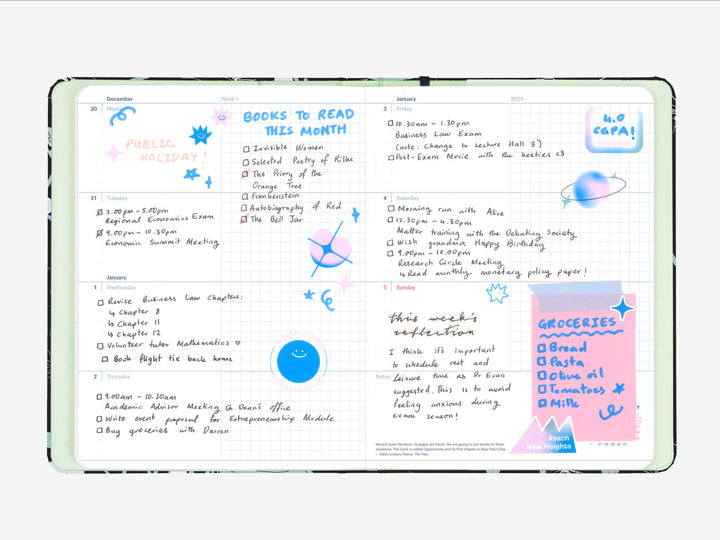 December
Week 1
30
Monday
PUBLIC
HOLIDAY!
BOOKS TO READ
THIS MONTH
Invisible Women
Selected Poetry of Rilke
The Priory of the
Orange Tree
Frankenstein
Autobiography of Red
The Bell Jar
31
Tuesday
2.00pm - 5.00pm
Regional Economics Exam
9.00pm - 10.30pm
Economic Summit Meeting
January
1
Wednesday
Revise Business Law Chapters:
↳ Chapter 8
↳ Chapter 11
↳ Chapter 12
Volunteer tutor Mathematics
Book flight tix back home
2
Thursday
9.00am - 10.30am
Academic Advisor Meeting @ Dean's office
Write event proposal for Entrepreneurship Module
Buy groceries with Darren
January
2025
3
Friday
10.30am - 1.30pm
Business Law Exam
(note: Change to Lecture Hall 3)
Post-Exam Movie with the besties <3
4.0
CGPA!
4
Saturday
Morning run with Alice
12.30pm - 4.30pm
Matter training with the Debating Society
Wish grandma Happy Birthday
9.00pm - 10.00pm
Research Circle Meeting
↳ Read monthly monetary policy paper!
5
Sunday
this week's
reflection
I think it's important
to schedule rest and
Notes
Leisure time as Dr Evan
suggested. This is to avoid
feeling anxious during
exam season!
GROCERIES
Bread
Pasta
Olive oil
Tomatoes
Milk
Reach
New Heights
27 28 29 30 31
We will open the book. Its pages are blank. We are going to put words on them
ourselves. The book is called Opportunity and its first chapter is New Year's Day.
— Edith Lovejoy Pierce, The Year